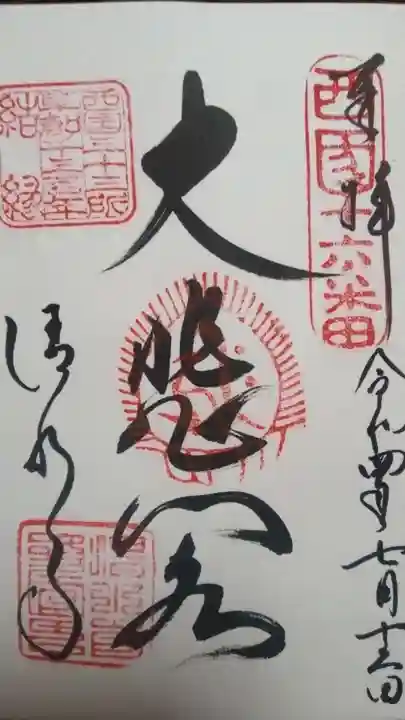 奉拝
西国十六番
令和四年七月十三日
大悲閣
清水寺
西国三十三所
草創千三百年
結縁